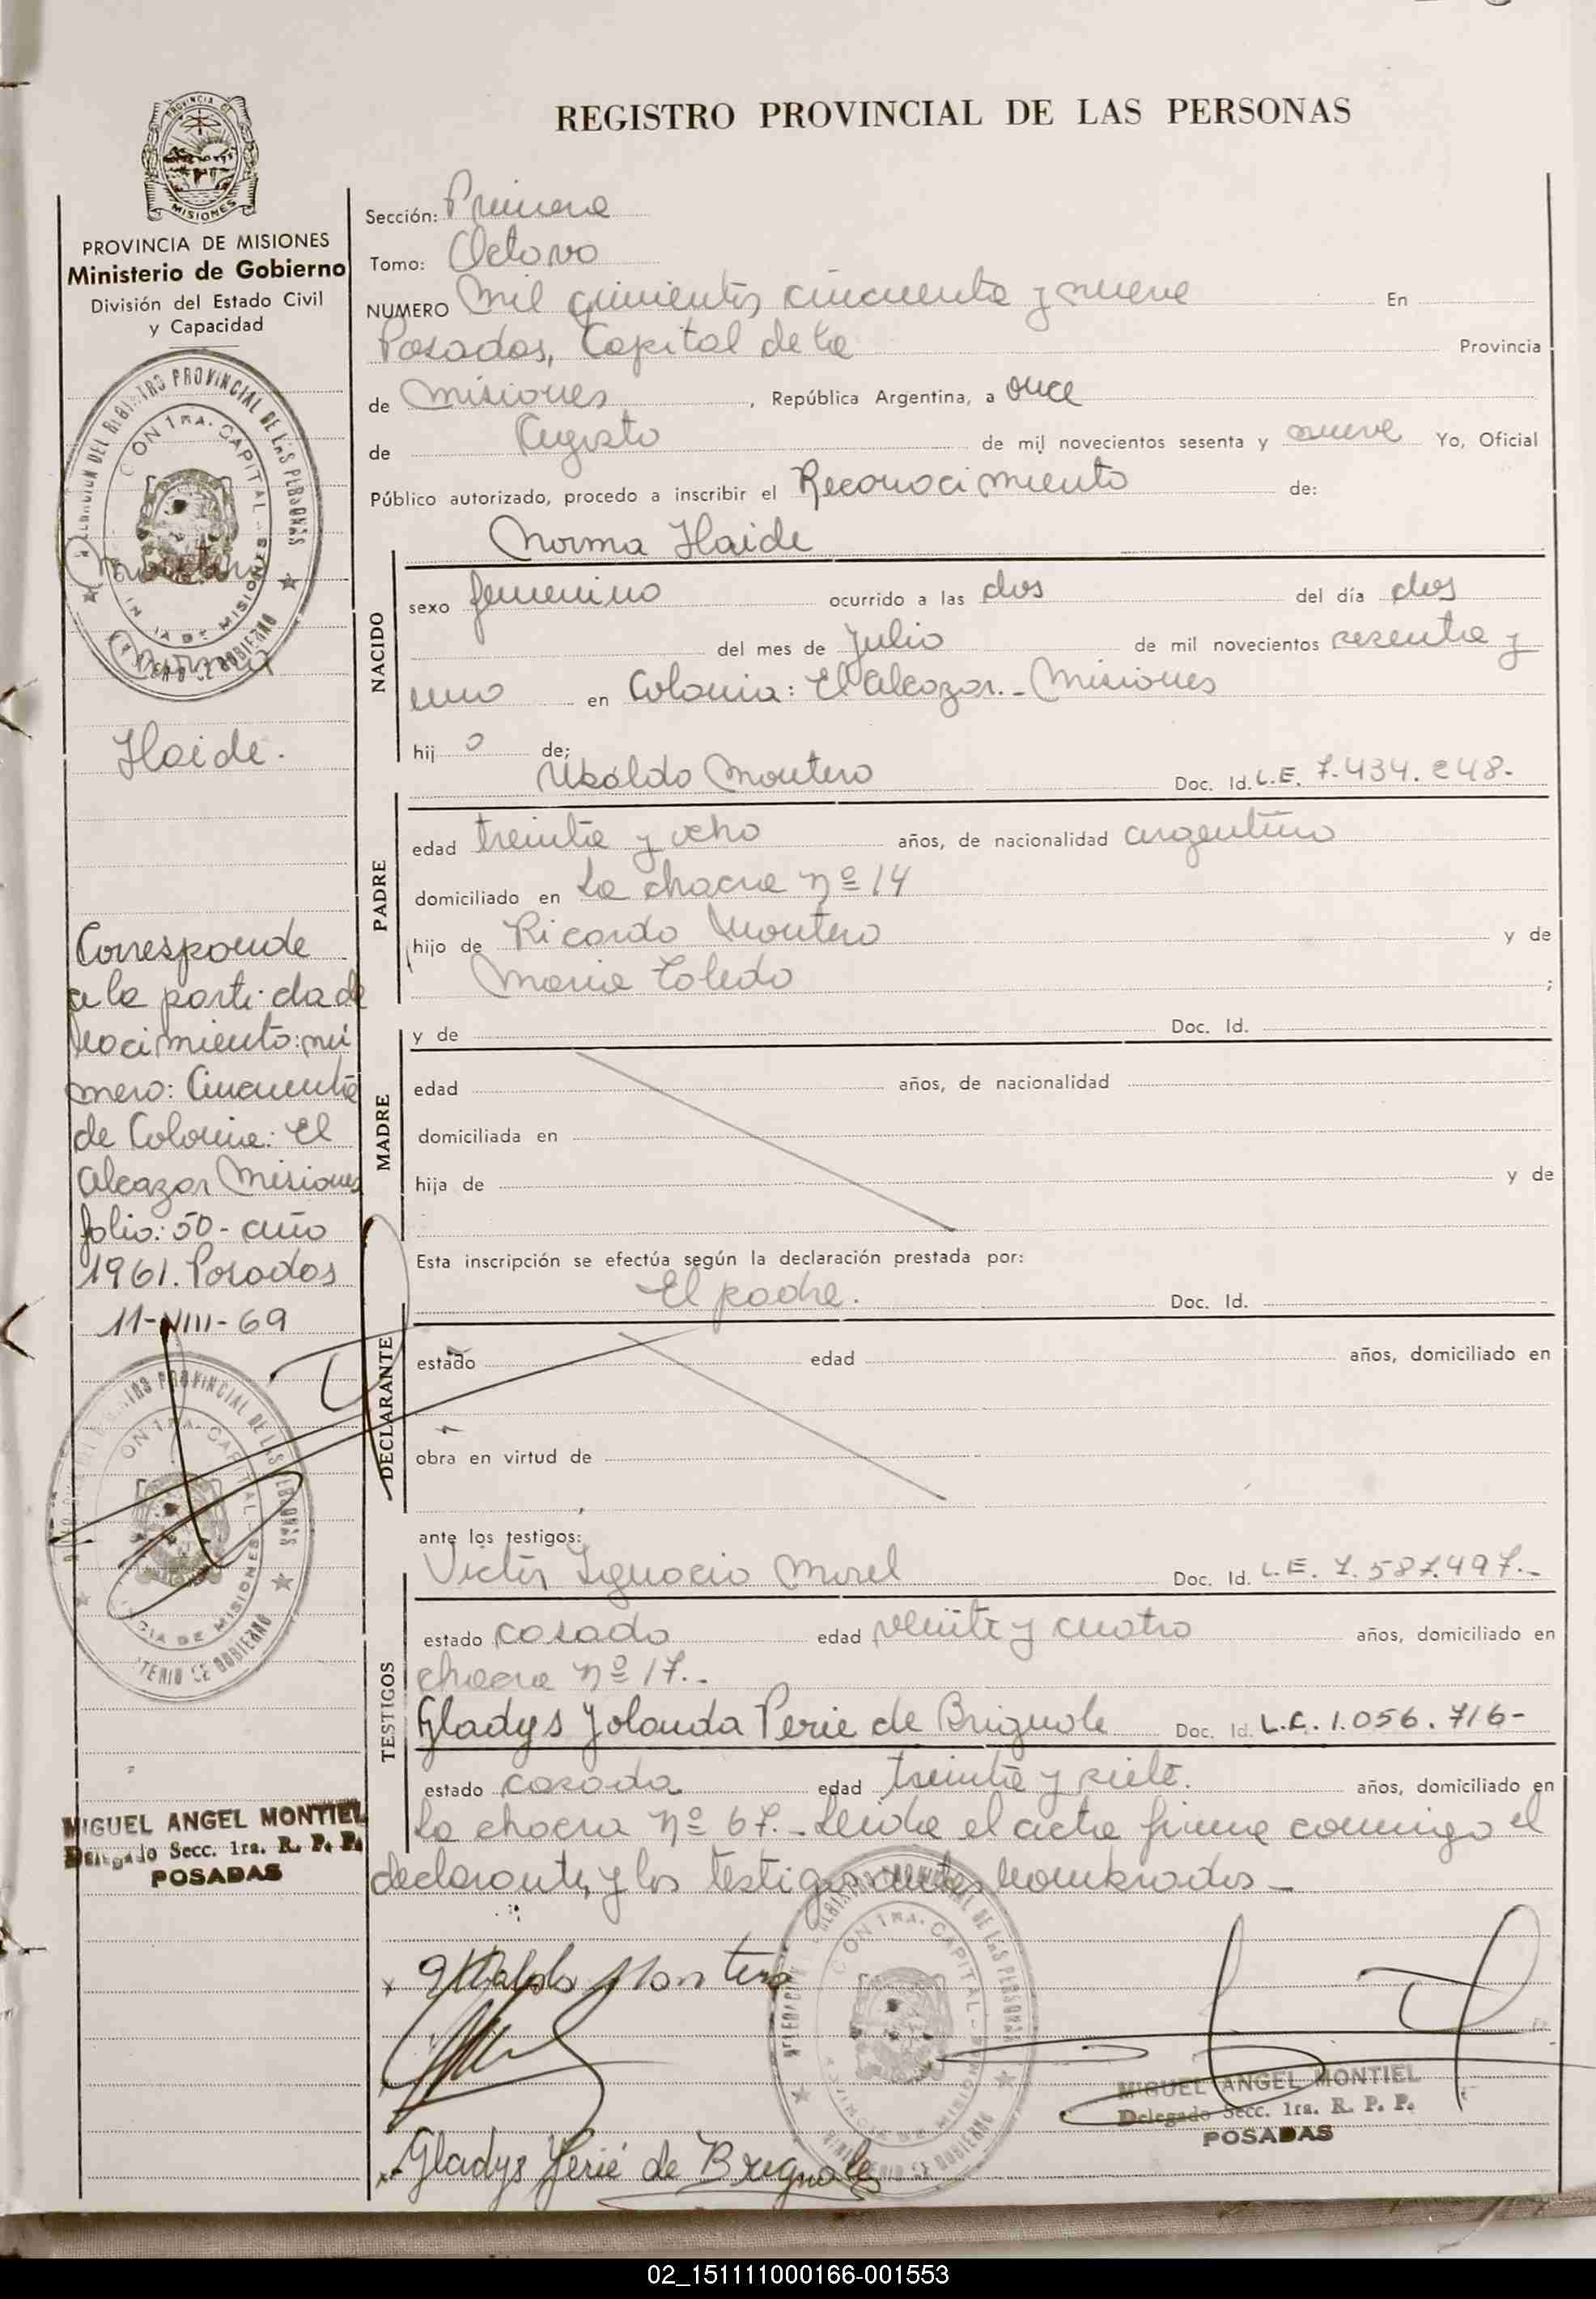 REGISTRO PROVINCIAL DE LAS PERSONAS
PROVINCIA DE
MISIONES
PROVINCIA DE MISIONES
Ministerio de Gobierno
División del Estado Civil
y Capacidad
Montero
Norma
Haide.
Corresponde
a la partida de
nacimiento: nú
mero: Cincuenta
de Colonia: El
Alcazar Misiones
folio: 50 - año
1961. Posadas
11-VIII-69
MIGUEL ANGEL MONTIEL
Delegado Secc. 1ra. R. P. P.
POSADAS
Sección: Primera
Tomo: Octavo
NUMERO Mil quinientos cincuenta y nueve En
Posadas, Capital de la Provincia
de Misiones, República Argentina, a once
de Agosto de mil novecientos sesenta y nueve Yo, Oficial
Público autorizado, procedo a inscribir el Reconocimiento de:
Norma Haide
NACIDO
sexo femenino ocurrido a las dos del día dos
del mes de Julio de mil novecientos sesenta y
uno en Colonia: El Alcazar. - Misiones
hij o de;
Ubaldo Montero Doc. Id. L.E. 7.434.248-
PADRE
edad treinta y ocho años, de nacionalidad argentino
domiciliado en La chacra nº 14
hijo de Ricardo Montero y de
Maria Toledo ;
MADRE
y de Doc. Id.
edad años, de nacionalidad
domiciliada en
hija de y de
Esta inscripción se efectúa según la declaración prestada por:
El padre. Doc. Id.
DECLARANTE
estado edad años, domiciliado en
obra en virtud de
ante los testigos:
Victor Ignacio Morel Doc. Id. L.E. 7.587.497.-
TESTIGOS
estado casado edad veinte y cuatro años, domiciliado en
chacra nº 17.-
Gladys Yolanda Perie de Brignole Doc. Id. L.C. 1.056.716-
estado casada edad treinta y siete. años, domiciliado en
La chacra nº 67.- Leida el acta firma conmigo el
declarante, y los testigos antes nombrados -
x Ubaldo Montero
x Gladys Perié de Brignole
DELEGACION DEL REGISTRO PROVINCIAL DE LAS PERSONAS
MINISTERIO DE GOBIERNO
MIGUEL ANGEL MONTIEL
Delegado Secc. 1ra. R. P. P.
POSADAS
02_151111000166-001553